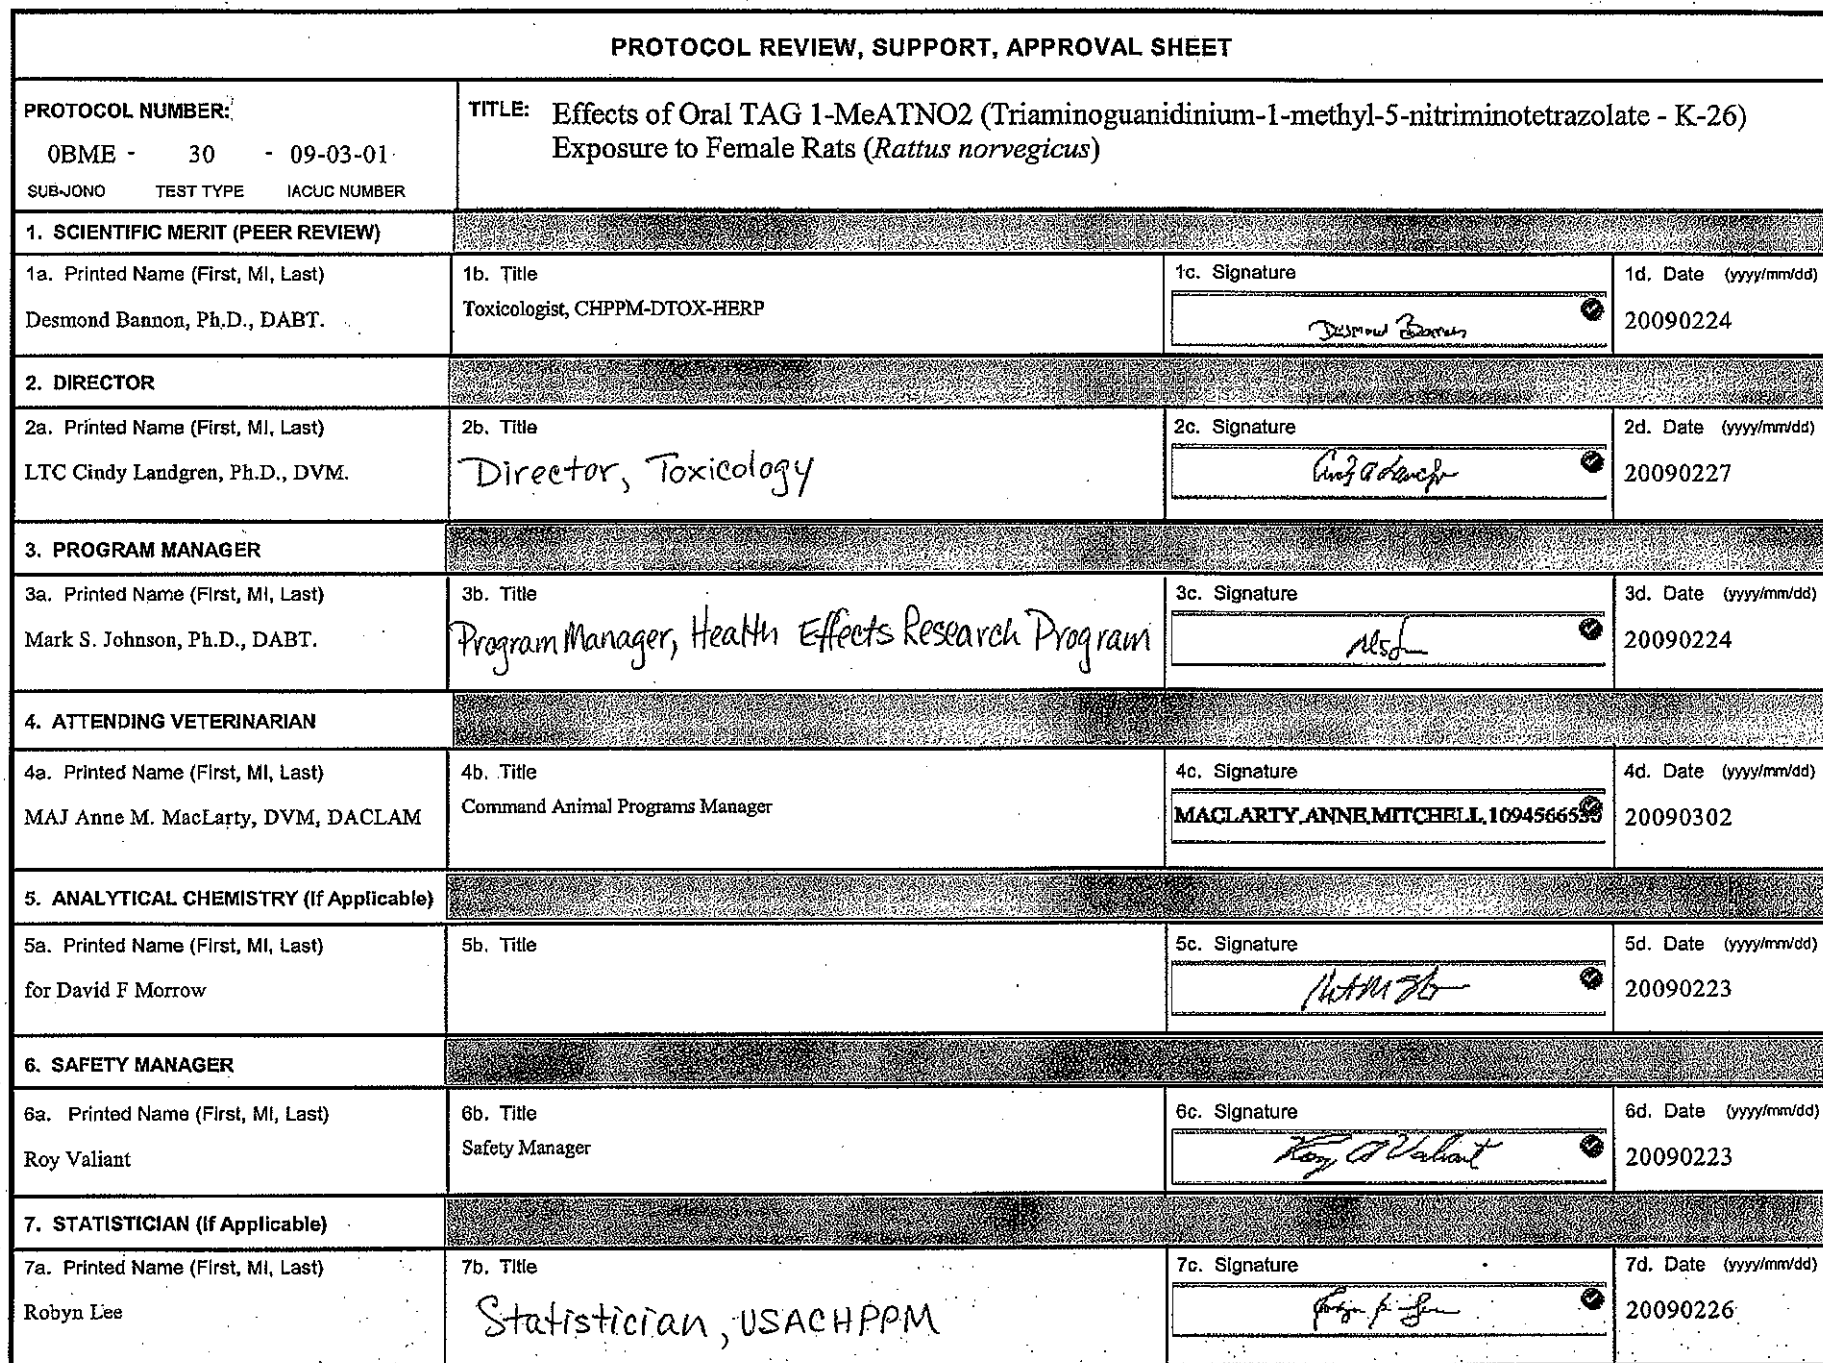 PROTOCOL REVIEW, SUPPORT, APPROVAL SHEET
PROTOCOL NUMBER:
0BME - 30 - 09-03-01
SUB-JONO TEST TYPE IACUC NUMBER
TITLE: Effects of Oral TAG 1-MeATNO2 (Triaminoguanidinium-1-methyl-5-nitriminotetrazolate - K-26)
Exposure to Female Rats (Rattus norvegicus)
1. SCIENTIFIC MERIT (PEER REVIEW)
1a. Printed Name (First, MI, Last)
Desmond Bannon, Ph.D., DABT.
1b. Title
Toxicologist, CHPPM-DTOX-HERP
1c. Signature
Desmond Bannon
1d. Date (yyyy/mm/dd)
20090224
2. DIRECTOR
2a. Printed Name (First, MI, Last)
LTC Cindy Landgren, Ph.D., DVM.
2b. Title
Director, Toxicology
2c. Signature
2d. Date (yyyy/mm/dd)
20090227
3. PROGRAM MANAGER
3a. Printed Name (First, MI, Last)
Mark S. Johnson, Ph.D., DABT.
3b. Title
Program Manager, Health Effects Research Program
3c. Signature
3d. Date (yyyy/mm/dd)
20090224
4. ATTENDING VETERINARIAN
4a. Printed Name (First, MI, Last)
MAJ Anne M. MacLarty, DVM, DACLAM
4b. Title
Command Animal Programs Manager
4c. Signature
MACLARTY.ANNE.MITCHELL.
4d. Date (yyyy/mm/dd)
20090302
5. ANALYTICAL CHEMISTRY (If Applicable)
5a. Printed Name (First, MI, Last)
for David F Morrow
5b. Title
5c. Signature
5d. Date (yyyy/mm/dd)
20090223
6. SAFETY MANAGER
6a. Printed Name (First, MI, Last)
Roy Valiant
6b. Title
Safety Manager
6c. Signature
Roy A Valiant
6d. Date (yyyy/mm/dd)
20090223
7. STATISTICIAN (If Applicable)
7a. Printed Name (First, MI, Last)
Robyn Lee
7b. Title
Statistician, USACHPPM
7c. Signature
7d. Date (yyyy/mm/dd)
20090226